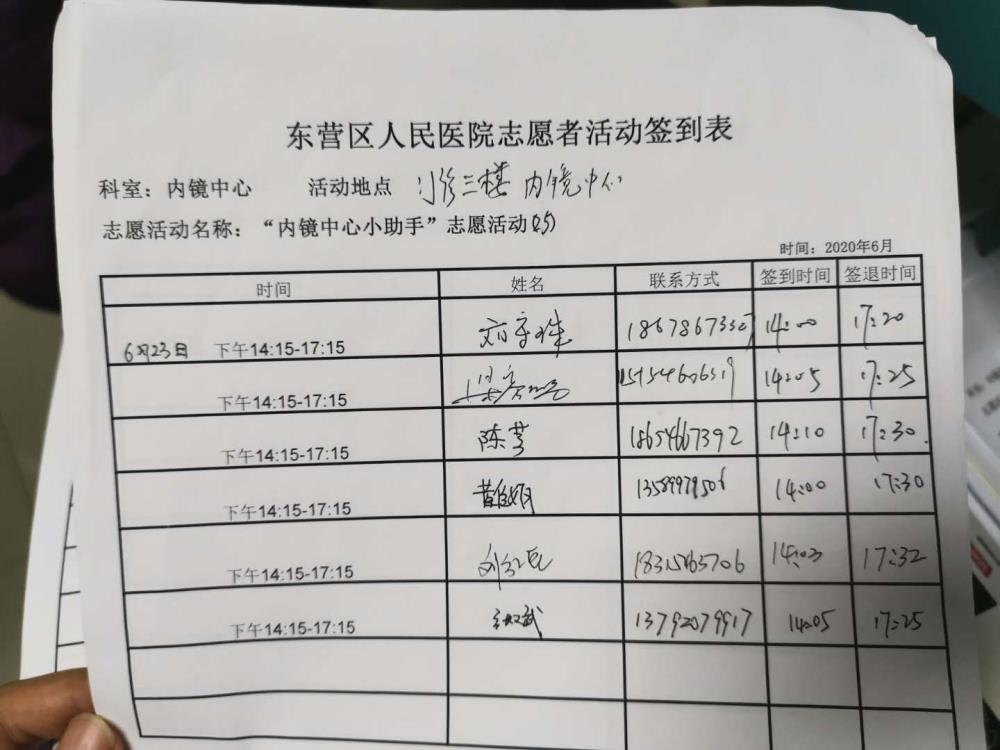 东营区人民医院志愿者活动签到表
科室：内镜中心 活动地点 门诊三楼 内镜中心
志愿活动名称：“内镜中心小助手”志愿活动(25)
时间：2020年6月
时间 姓名 联系方式 签到时间 签退时间
6月23日 下午14:15-17:15 14:00 17:20
下午14:15-17:15 14:05 17:25
下午14:15-17:15 陈芳 18654667392 14:10 17:30.
下午14:15-17:15 13589979506 14:00 17:30
下午14:15-17:15 18315463706 14:03 17:32
下午14:15-17:15 13792079917 14:05 17:25